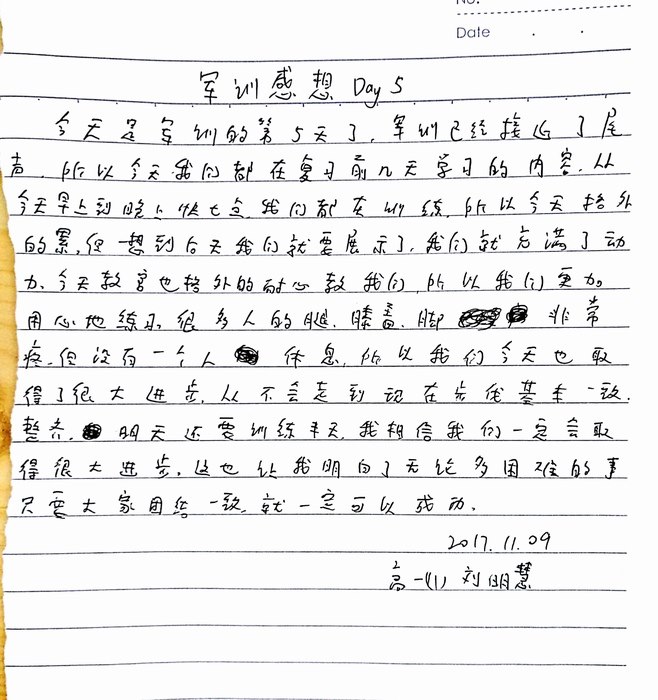 No.
Date . .
军训感想 Day 5
今天是军训的第5天了,军训已经接近了尾
声,所以今天我们都在复习前几天学习的内容,从
今天早上到晚上快七点,我们都在训练,所以今天格外
的累,但一想到后天我们就要展示了,我们就充满了动
力,今天教官也格外的耐心教我们,所以我们更加
用心地练习,很多人的腿、膝盖、脚非常
疼,但没有一个人休息,所以我们今天也取
得了很大进步,从不会走到现在步伐基本一致,
整齐,明天还要训练半天,我相信我们一定会取
得很大进步,这也让我明白了无论多困难的事
只要大家团结一致,就一定可以成功。
2017.11.09
高一(1) 刘明慧